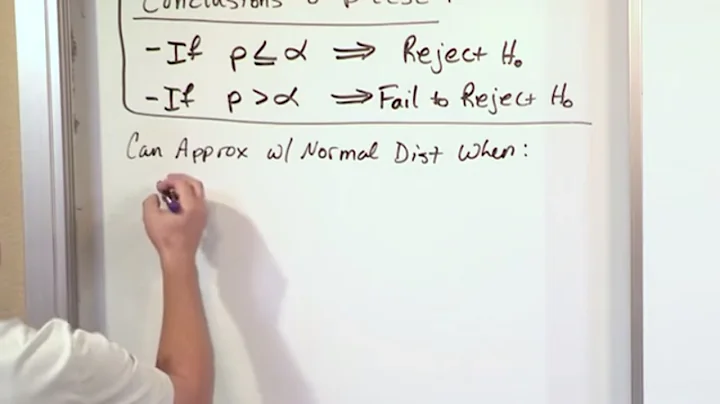 Conclusions
- If p ≤ α ⇒ Reject H₀
- If p > α ⇒ Fail to Reject H₀
Can Approx w/ Normal Dist When: